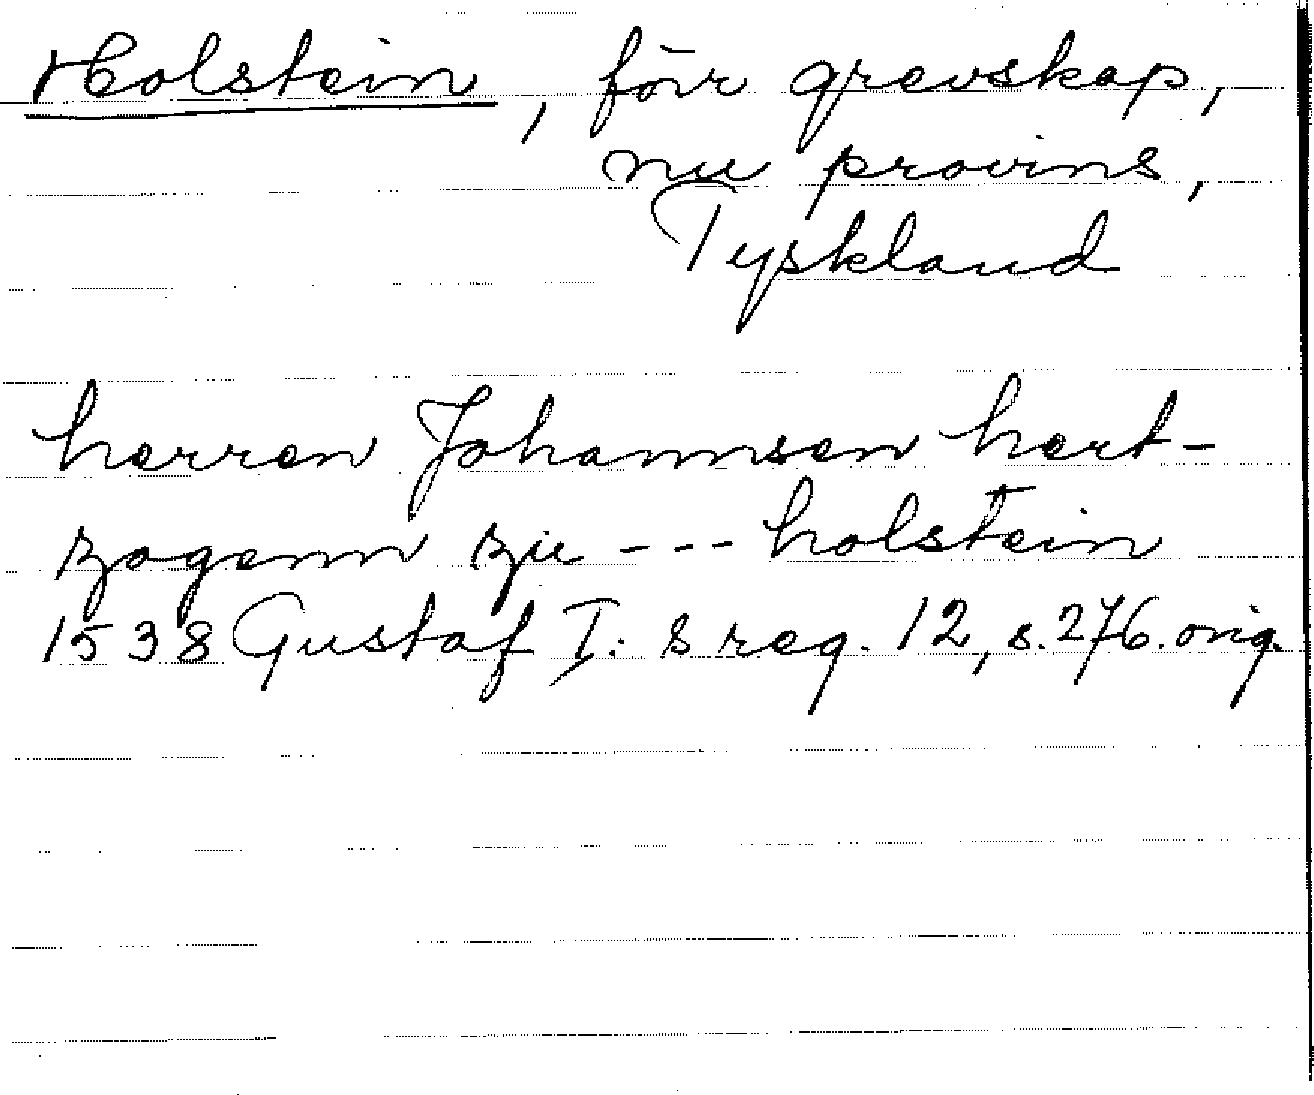 Holstein, förr grevskap,
nu provins,
Tyskland
herren Johannsen hert-
zogenn zu --- holstein
1538 Gustaf I:s reg. 12, s. 276. orig.